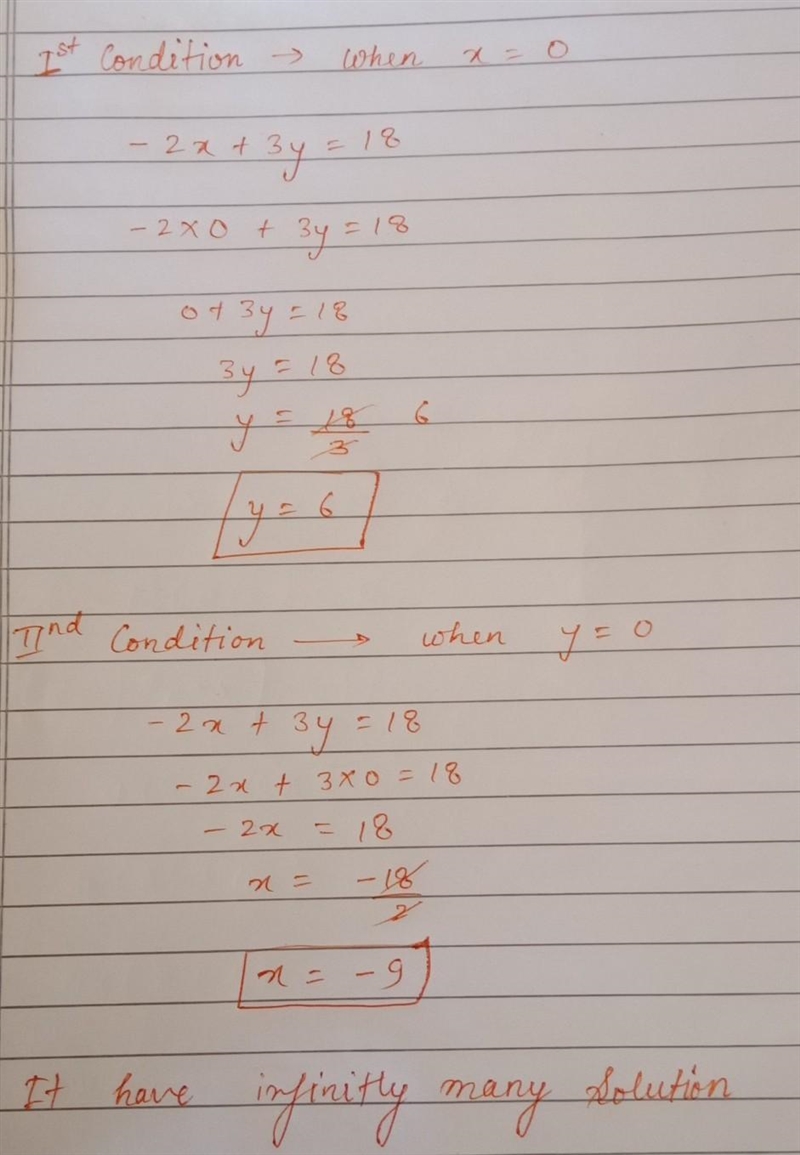 Ist Condition → when x = 0
- 2x + 3y = 18
- 2×0 + 3y = 18
0 + 3y = 18
3y = 18
y = 18/3 6
y = 6
IInd Condition → when y = 0
- 2x + 3y = 18
- 2x + 3×0 = 18
- 2x = 18
x = -18/2
x = -9
It have infinitly many Solution